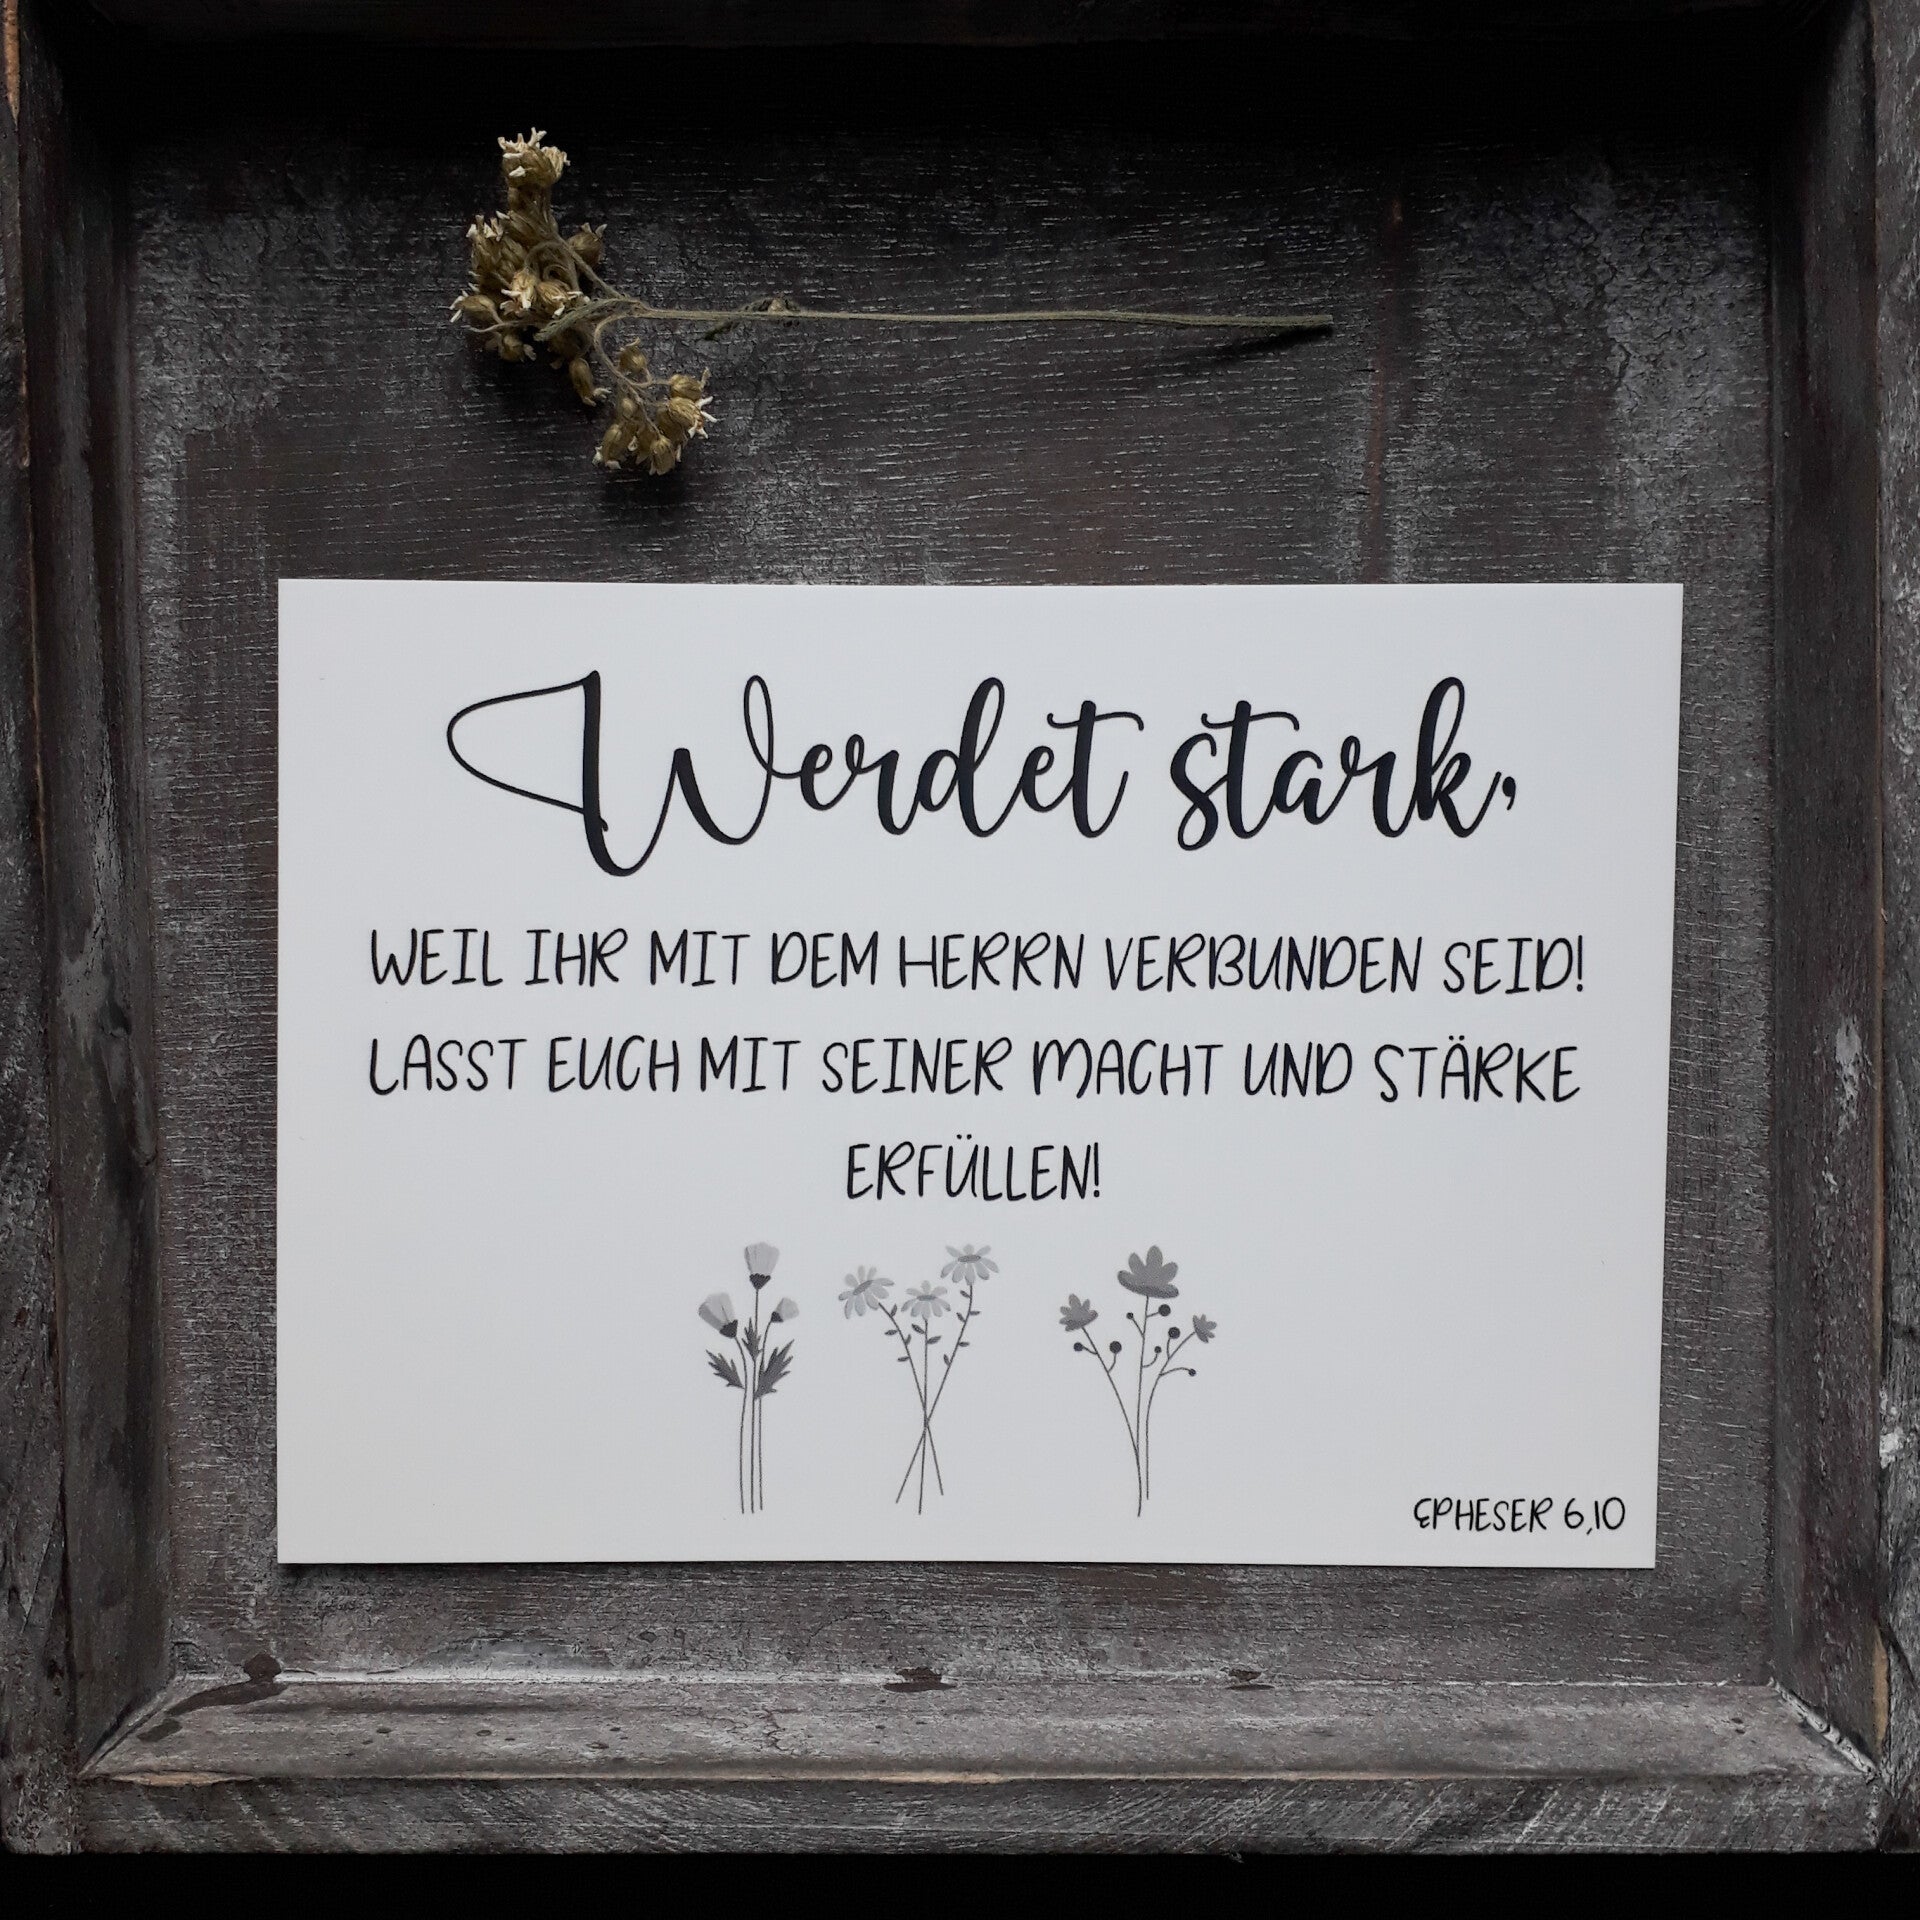 Werdet stark,
WEIL IHR MIT DEM HERRN VERBUNDEN SEID!
LASST EUCH MIT SEINER MACHT UND STÄRKE
ERFÜLLEN!
EPHESER 6,10